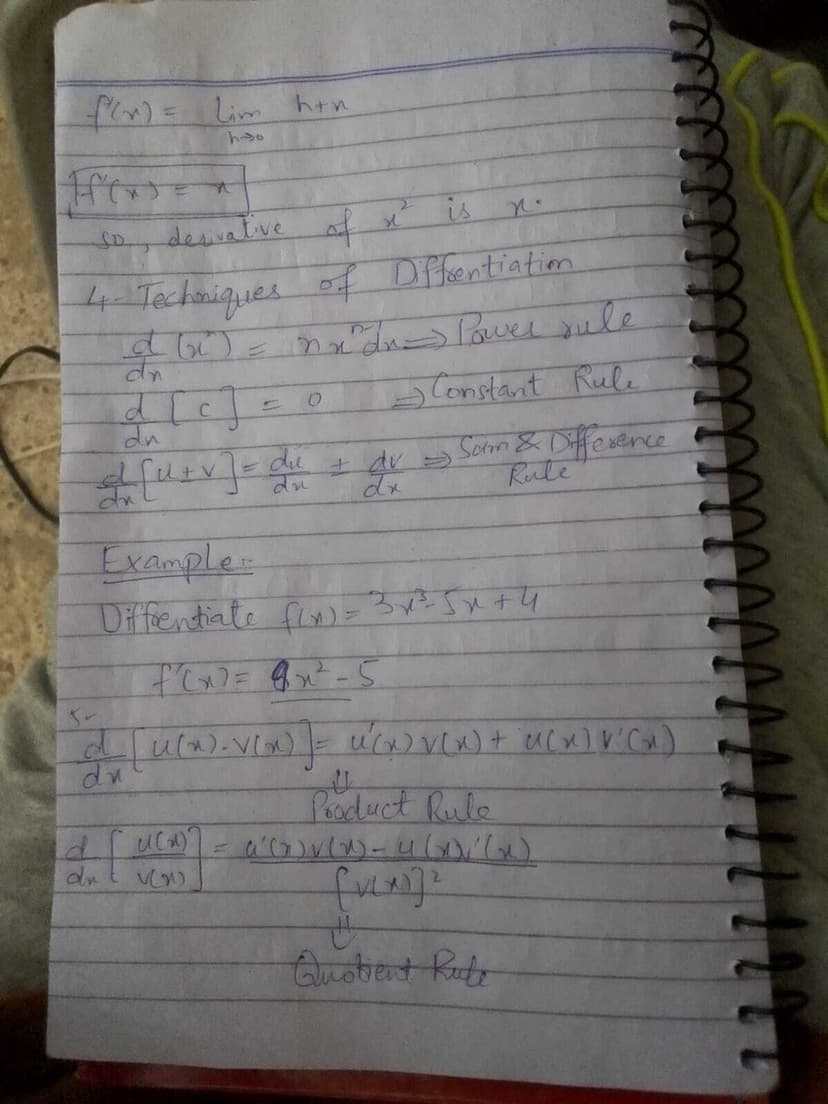 f'(x) = Lim h+x
h→0
f'(x) = x
so, derivative of x² is x.
4- Techniques of Diffrentiation
d/dx (xⁿ) = nxⁿ⁻¹dx ⇒ Power rule
d/dx [c] = 0 ⇒ Constant Rule
d/dx [u±v] = du/dx ± dv/dx ⇒ Sum & Difference
Rule
Example:-
Diffrentiate f(x) = 3x³-5x+4
f'(x) = 9x² - 5
5-
d/dx [u(x).v(x)] = u'(x) v(x) + u(x) v'(x)
⇓
Product Rule
d/dx [u(x)/v(x)] = u'(x)v(x) - u(x)v'(x)
[v(x)]²
⇓
Quotient Rule